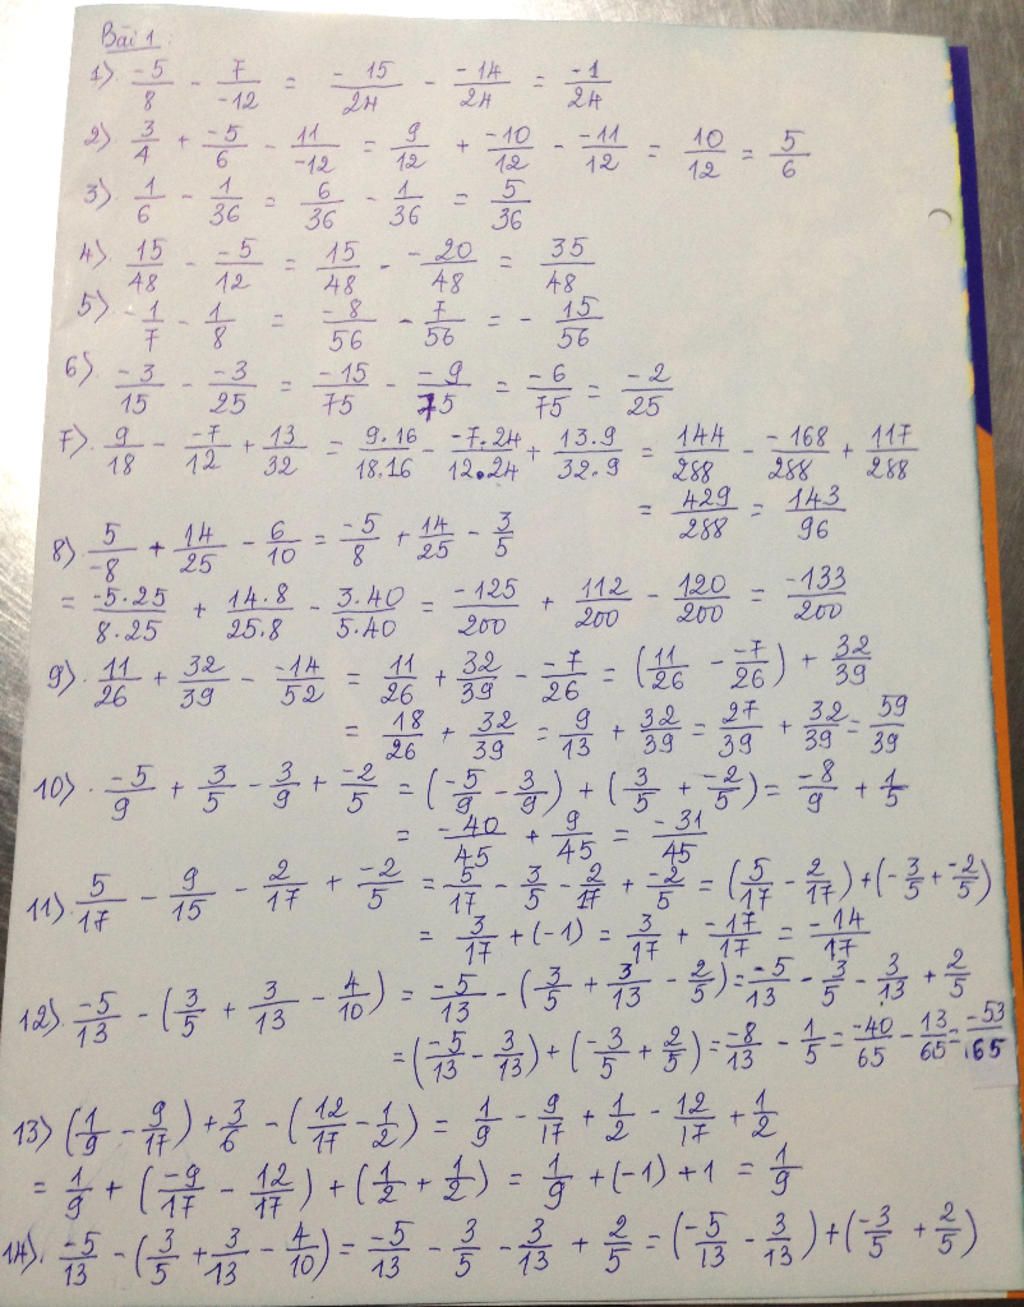 Bài 1:
1) -5/8 - 7/-12 = -15/24 - -14/24 = -1/24
2) 3/4 + -5/6 - 11/-12 = 9/12 + -10/12 - -11/12 = 10/12 = 5/6
3) 1/6 - 1/36 = 6/36 - 1/36 = 5/36
4) 15/48 - -5/12 = 15/48 - -20/48 = 35/48
5) -1/7 - 1/8 = -8/56 - 7/56 = -15/56
6) -3/15 - -3/25 = -15/75 - -9/75 = -6/75 = -2/25
7) 9/18 - -7/12 + 13/32 = 9.16/18.16 - -7.24/12.24 + 13.9/32.9 = 144/288 - -168/288 + 117/288
= 429/288 = 143/96
8) 5/-8 + 14/25 - 6/10 = -5/8 + 14/25 - 3/5
= -5.25/8.25 + 14.8/25.8 - 3.40/5.40 = -125/200 + 112/200 - 120/200 = -133/200
9) 11/26 + 32/39 - -14/52 = 11/26 + 32/39 - -7/26 = (11/26 - -7/26) + 32/39
= 18/26 + 32/39 = 9/13 + 32/39 = 27/39 + 32/39 = 59/39
10) -5/9 + 3/5 - 3/9 + -2/5 = (-5/9 - 3/9) + (3/5 + -2/5) = -8/9 + 1/5
= -40/45 + 9/45 = -31/45
11) 5/17 - 9/15 - 2/17 + -2/5 = 5/17 - 3/5 - 2/17 + -2/5 = (5/17 - 2/17) + (-3/5 + -2/5)
= 3/17 + (-1) = 3/17 + -17/17 = -14/17
12) -5/13 - (3/5 + 3/13 - 4/10) = -5/13 - (3/5 + 3/13 - 2/5) = -5/13 - 3/5 - 3/13 + 2/5
= (-5/13 - 3/13) + (-3/5 + 2/5) = -8/13 - 1/5 = -40/65 - 13/65 = -53/65
13) (1/9 - 9/17) + 3/6 - (12/17 - 1/2) = 1/9 - 9/17 + 1/2 - 12/17 + 1/2
= 1/9 + (-9/17 - 12/17) + (1/2 + 1/2) = 1/9 + (-1) + 1 = 1/9
14) -5/13 - (3/5 + 3/13 - 4/10) = -5/13 - 3/5 - 3/13 + 2/5 = (-5/13 - 3/13) + (-3/5 + 2/5)